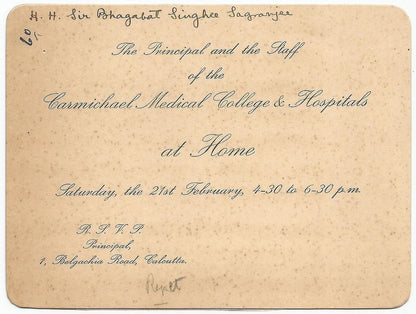 H. H. Sir Bhagabat Singhee Sagramjee
60
The Principal and the Staff
of the
Carmichael Medical College & Hospitals
at Home
Saturday, the 21st February, 4-30 to 6-30 p.m.
R. S. V. P.
Principal,
1, Belgachia Road, Calcutta.